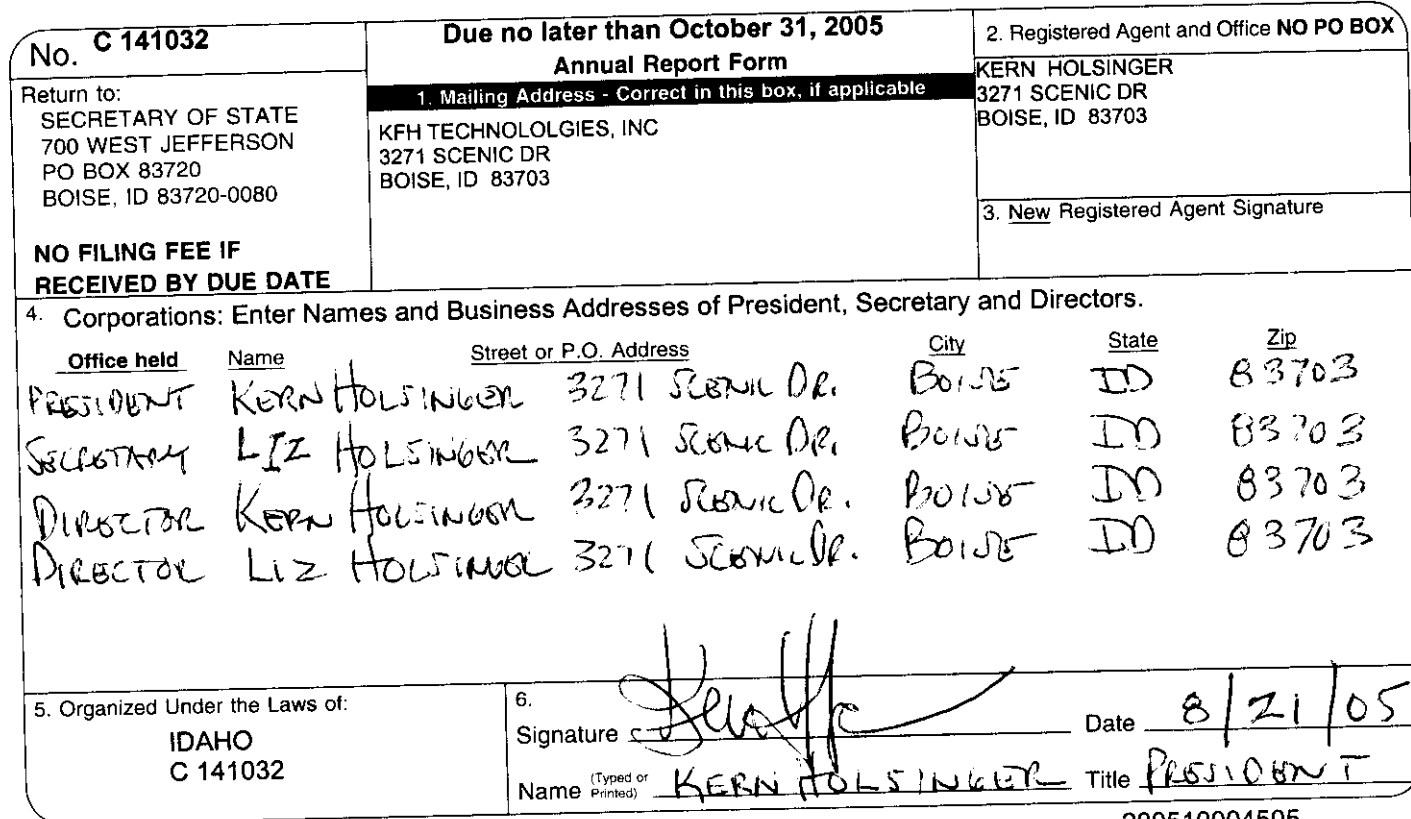 No. C 141032
Return to:
SECRETARY OF STATE
700 WEST JEFFERSON
PO BOX 83720
BOISE, ID 83720-0080
NO FILING FEE IF
RECEIVED BY DUE DATE
Due no later than October 31, 2005
Annual Report Form
1. Mailing Address - Correct in this box, if applicable
KFH TECHNOLOLGIES, INC
3271 SCENIC DR
BOISE, ID 83703
2. Registered Agent and Office NO PO BOX
KERN HOLSINGER
3271 SCENIC DR
BOISE, ID 83703
3. New Registered Agent Signature
4. Corporations: Enter Names and Business Addresses of President, Secretary and Directors.
Office held Name Street or P.O. Address City State Zip
PRESIDENT KERN HOLSINGER 3271 SCENIC DR. BOISE ID 83703
SECRETARY LIZ HOLSINGER 3271 SCENIC DR. BOISE ID 83703
DIRECTOR KERN HOLSINGER 3271 SCENIC DR. BOISE ID 83703
DIRECTOR LIZ HOLSINGER 3271 SCENIC DR. BOISE ID 83703
5. Organized Under the Laws of:
IDAHO
C 141032
6.
Signature Date 8/21/05
Name (Typed or Printed) KERN HOLSINGER Title PRESIDENT